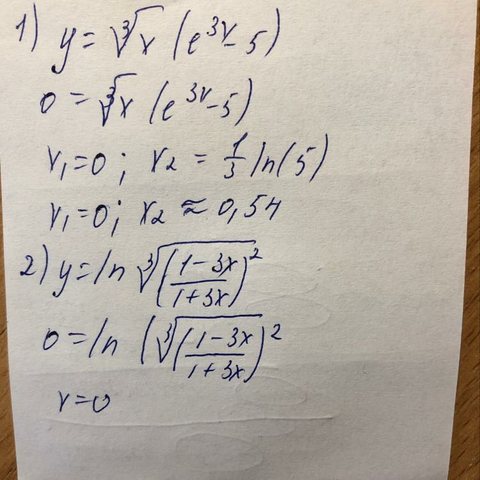 1) y = ∛x (e^{3x} - 5)
0 = ∛x (e^{3x} - 5)
x₁ = 0 ; x₂ = 1/3 ln(5)
x₁ = 0 ; x₂ ≈ 0,54
2) y = ln ∛((1 - 3x)/(1 + 3x))²
0 = ln (∛((1 - 3x)/(1 + 3x))²
x = 0